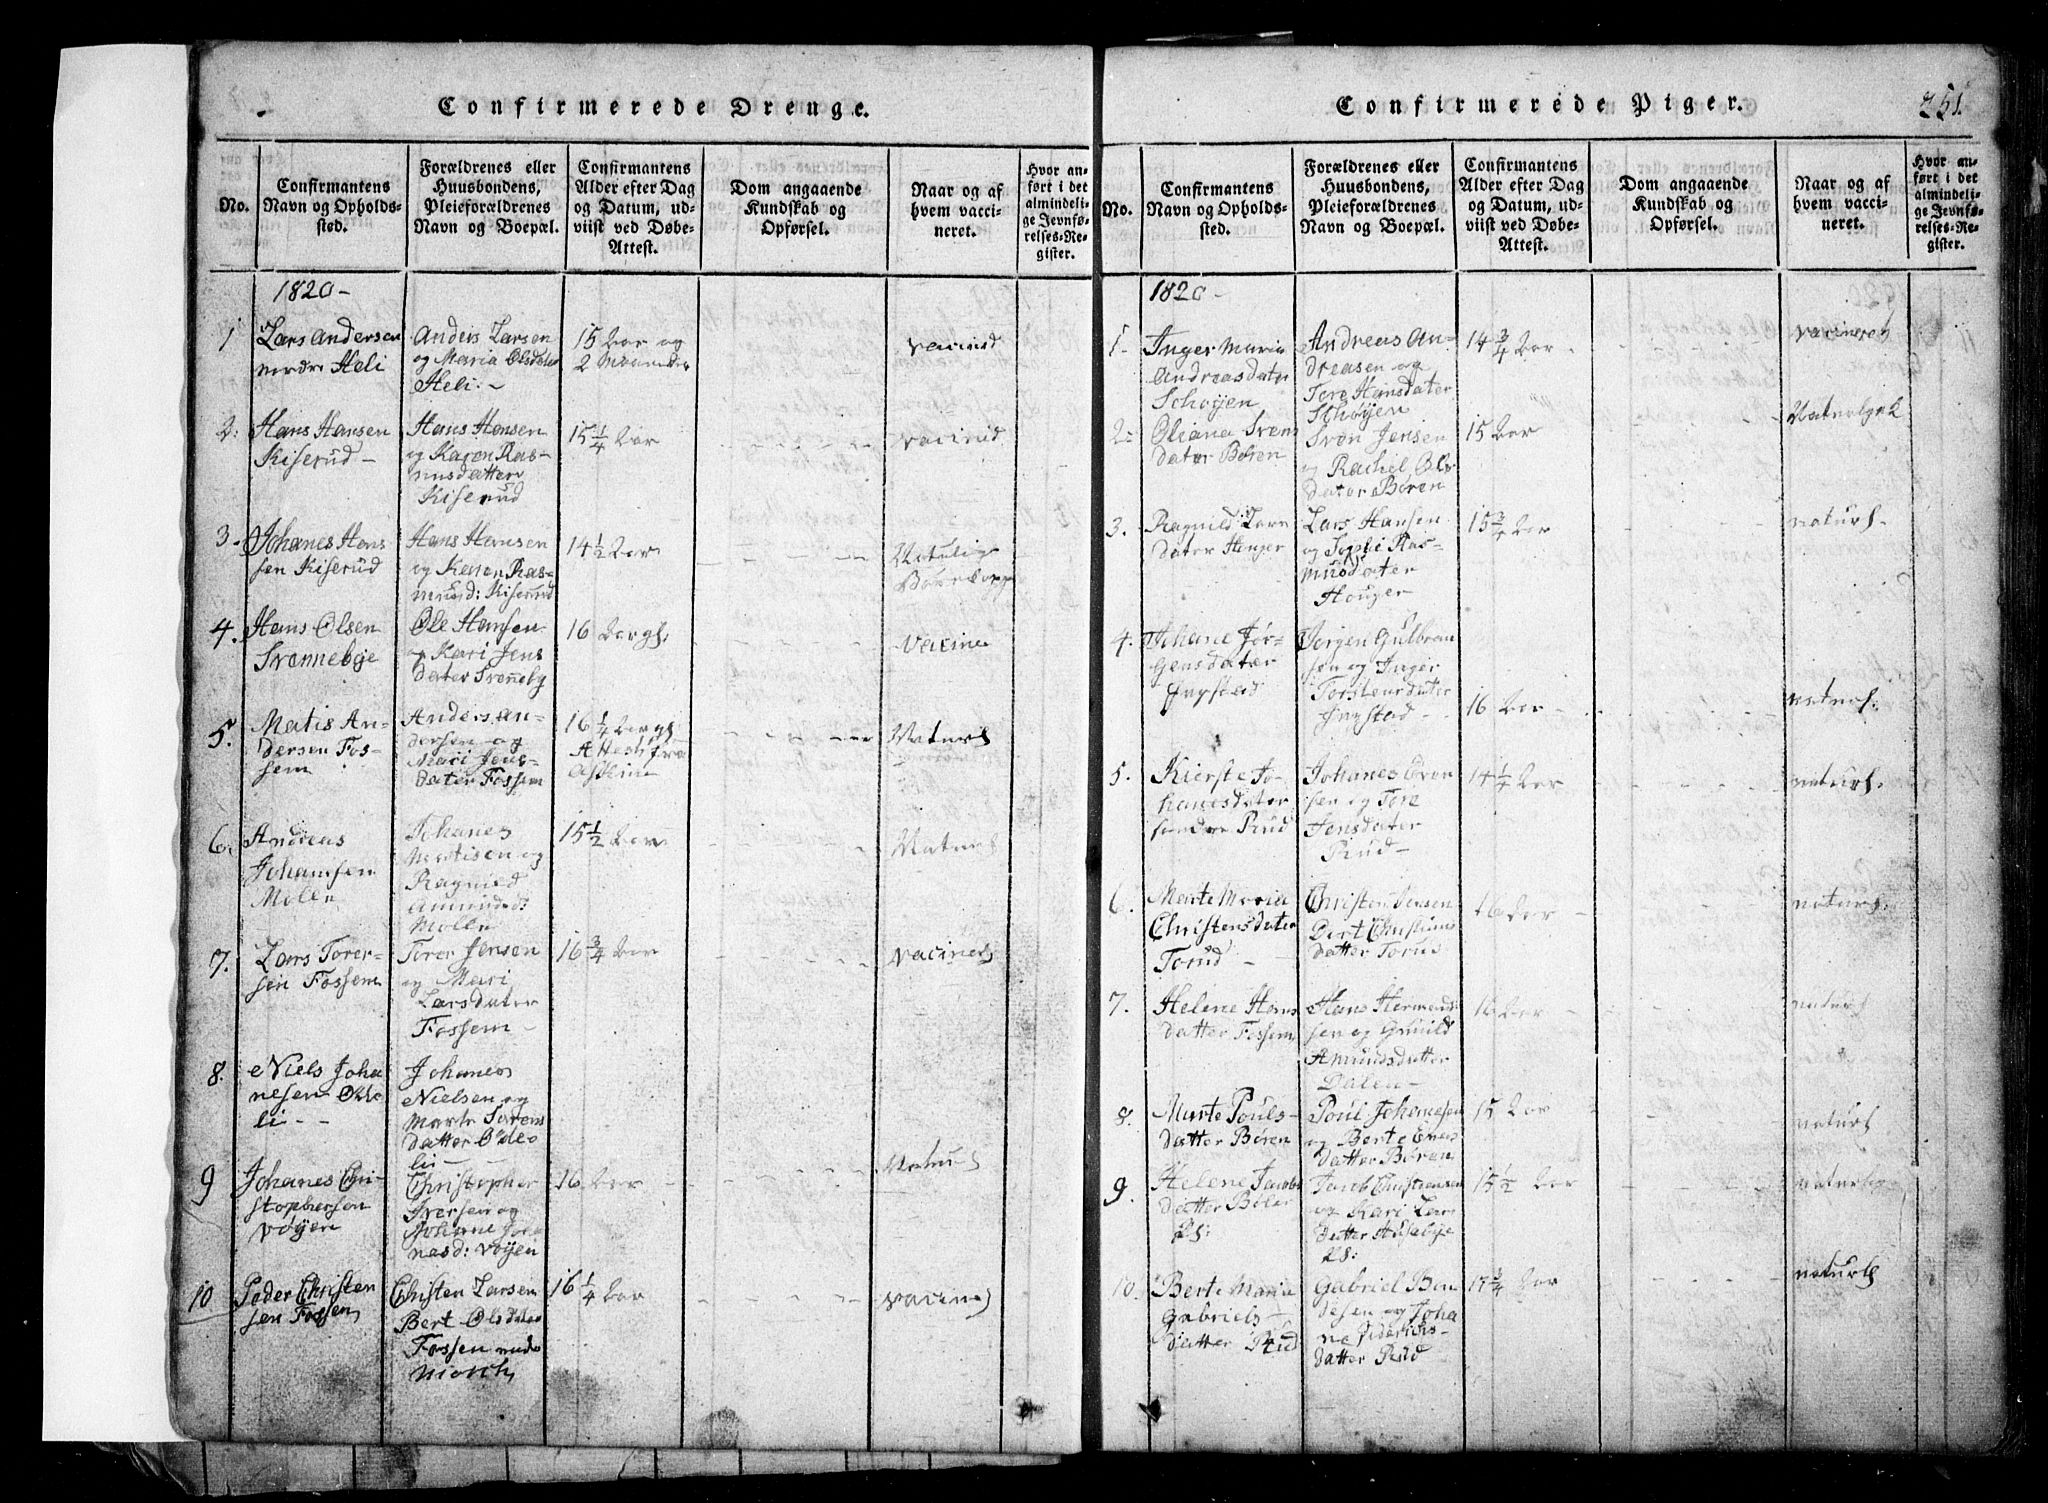 Confirmerede Drenge.
No.
Confirmantens
Navn og Opholds-
sted.
Forældrenes eller
Huusbondens,
Pleieforældrenes
Navn og Boepæl.
Confirmantens
Alder efter Dag
og Datum, ud-
viist ved Døbe-
Attest.
Dom angaaende
Kundskab og
Opførsel.
Naar og af
hvem vacci-
neret.
Hvor an-
ført i det
almindeli-
ge Jevnfø-
relses-Re-
gister.
1820-
1
Lars Andersen
Heli
Anders Larsen
og Maria Olsdater
Heli
15 Aar og
2 Maaneder
2.
Hans Hansen
Kiserud
Hans Hansen
og Karen Ras-
musdatter
Kiserud
15 1/4 Aar
3
Johanes Han
sen Kiserud
Hans Hansen
og Karen Ras-
musd: Kiserud
14 1/2 Aar
4.
Hans Olsen
Svennebye
Ole Hansen
og Kari Jens
dater Svenneby
16 Aar
Vacine
5.
Matis An-
dersen Fos-
sem
Anders An-
dersen og
Mari Jens-
dater Fossem
16 1/4 Aar
Attest fra
Naturl
6.
Andreas
Johansen
Mølen
Johanes
og
Ragnild
Amunds:
Mølen
15 1/2 Aar
Naturl
7.
Lars Torer-
sen Fossem
Torer Jensen
og Mari
Larsdater
Fossem
16 3/4 Aar
Vacineret
8.
Niels Joha
nesen
li
Johanes
Nielsen og
Marte Sørens
datter
li
9
Johanes Chri-
stophersen
Vøyen
Christopher
Iversen og
Johanne Joha
nesd: Vøyen
16 Aar
Naturl
10
Peder Christen
sen Fossem
Christen Larsen
Bert Olsdater
Fossem
16 1/4 Aar
Vacine
Confirmerede Piger.
251.
No.
Confirmantens
Navn og Opholds-
sted.
Forældrenes eller
Huusbondens,
Pleieforældrenes
Navn og Boepæl.
Confirmantens
Alder efter Dag
og Datum, ud-
viist ved Døbe-
Attest.
Dom angaaende
Kundskab og
Opførsel.
Naar og af
hvem vacci-
neret.
Hvor an-
ført i det
almindeli-
ge Jevnfø-
relses-Re-
gister.
1820-
1-
Inger Marie
Andreasdater
Schøyen
Andreas An-
dreasen og
Tore Hansdater
Schøyen
14 3/4 Aar
Vacineret
2.
Oliana Svens
dater Børen
Sven Jensen
og Rachel Ols
dater Børen
15 Aar
3.
Ragnild Lars
dater Houger
Lars Hansen
og Sophi Ras-
musdater
Houger
15 3/4 Aar
naturl.
4.
Johane Jør-
gensdater
Ingstad
Jørgen Gulbran
sen og Inger
Torstensdater
Ingstad
16 Aar
naturl.
5.
Kierste Jo-
hanesdater
Rud
Johanes Even
sen og Tore
Jensdater
Rud
14 1/4 Aar
naturl.
6.
Marte Maria
Christensdater
Torud
Christen Jensen
Bert Christians
datter Torud
16 Aar
naturl.
7.
Helene Hans
datter Fossem
Hans Hermend
sen og Gunild
Amundsdatter
Dalen
16 Aar
naturl
8.
Marte Pouls-
datter Børen
Poul Johanesen
og Berte Evens
datter Børen
15 Aar
naturl
9.
Helene Jacobs
datter Bøler
Jacob Christensen
og Kari Lars
datter Husebye
15 1/2 Aar
10.
Berte Maria
Gabriels-
datter Rud
Gabriel Ben
desen og Joha
ne Fiderichs-
datter Rud
14 3/4 Aar
naturl